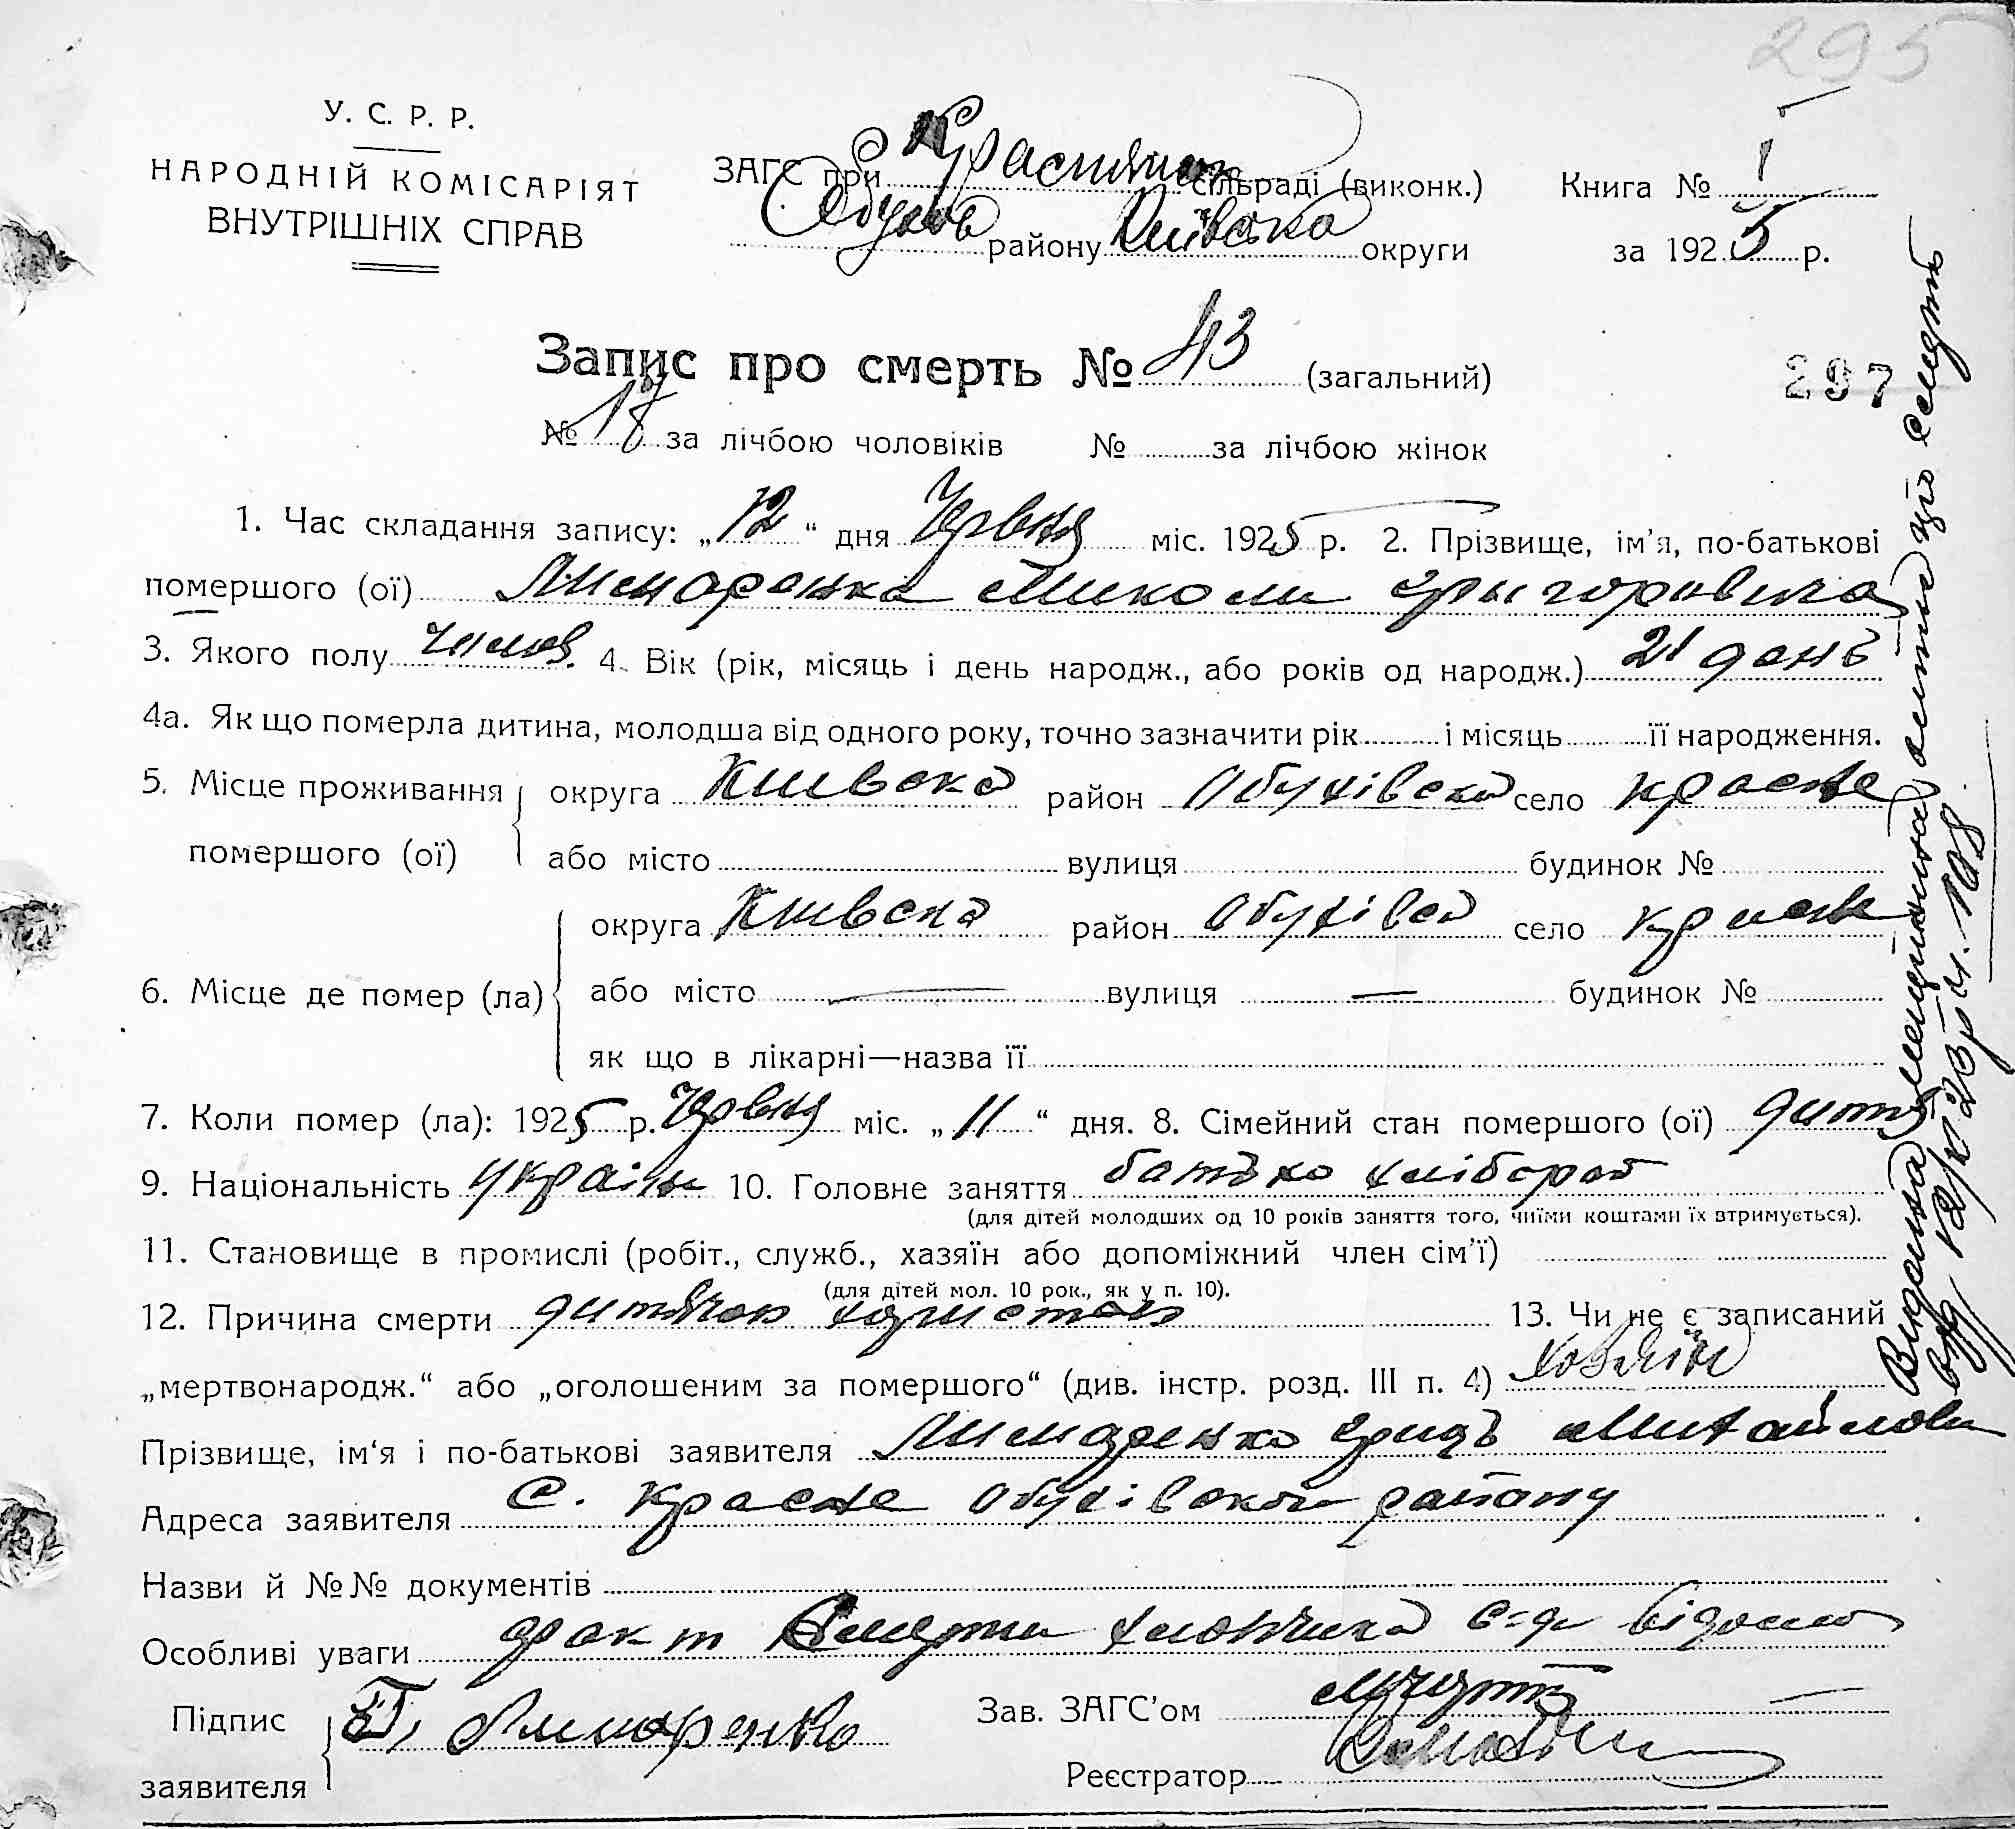 295
У. С. Р. Р.
НАРОДНІЙ КОМІСАРІЯТ
ВНУТРІШНІХ СПРАВ
ЗАГС при Краснянск сільраді (виконк.) Книга № I
Обухов району Київська округи за 1925 р.
Запис про смерть № 43 (загальний)
297
№ 18 за лічбою чоловіків № за лічбою жінок
1. Час складання запису: „12“ дня Червня міс. 1925 р. 2. Прізвище, ім'я, по-батькові
помершого (ої) Лимаренка Миколи Григоровича
3. Якого полу чолов. 4. Вік (рік, місяць і день народж., або років од народж.) 21 день
4а. Як що померла дитина, молодша від одного року, точно зазначити рік і місяць її народження.
5. Місце проживання округа Київска район Обухівска село Красне
помершого (ої) або місто вулиця будинок №
округа Київска район Обухівск село Красне
6. Місце де помер (ла) або місто — вулиця — будинок №
як що в лікарні—назва її
7. Коли помер (ла): 1925 р. Червня міс. „11“ дня. 8. Сімейний стан помершого (ої) дитя
9. Національність україн 10. Головне заняття батько хлібороб
(для дітей молодших од 10 років заняття того, чиїми коштами їх втримується).
11. Становище в промислі (робіт., служб., хазяїн або допоміжний член сім'ї)
(для дітей мол. 10 рок., як у п. 10).
12. Причина смерти дитячою 13. Чи не є записаний
„мертвонародж.“ або „оголошеним за помершого“ (див. інстр. розд. III п. 4) хозяїн
Прізвище, ім'я і по-батькові заявителя Лимаренко Гриць Михайлови
Адреса заявителя с. Красне Обухівского району
Назви й №№ документів
Особливі уваги факт смерти хлопчика с-ді відомо
Підпис заявителя Г. Лимаренко Зав. ЗАГС'ом
Реєстратор
Видана виписка про смерть